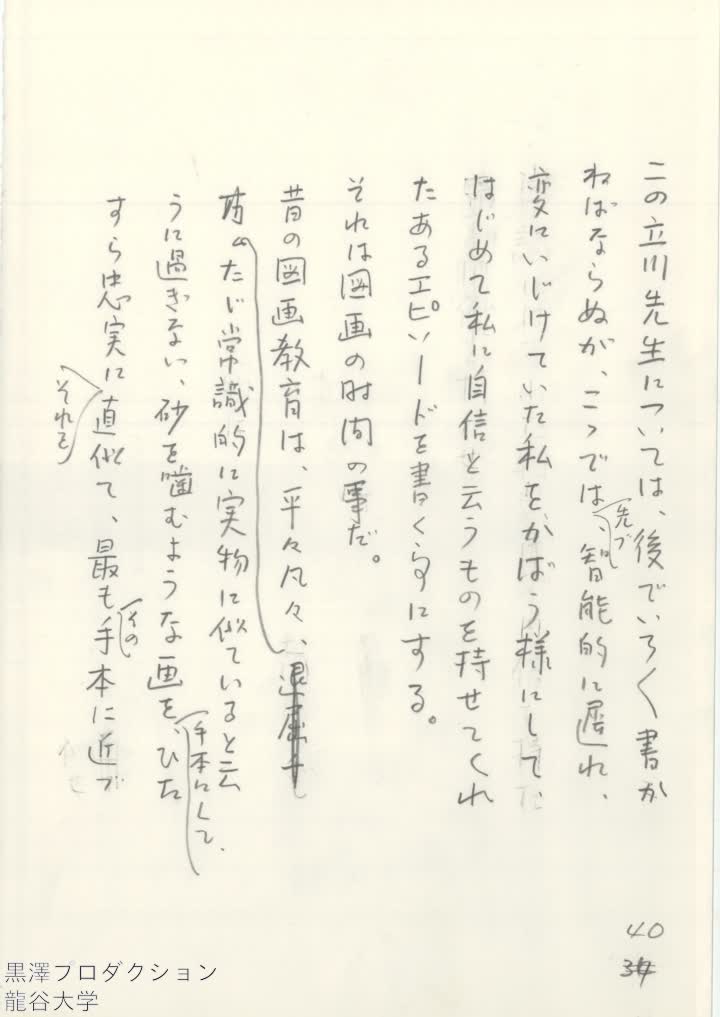 この立川先生については、後でいろ〱書か
ねばならぬが、こゝでは、先づ、智能的に遅れ、
変にいじけていた私を、かばう様にして、
はじめて私に自信と云うものを持せてくれ
たあるエピソードを書く事にする。
それは図画の時間の事だ。
昔の図画教育は、平々凡々、退屈
たゞ常識的に実物に似ていると云
うに過ぎない、砂を噛むような画を、手本にして、ひた
すら忠実にそれを真似て、最も手本に近づ
その
40
34
黒澤プロダクション
龍谷大学